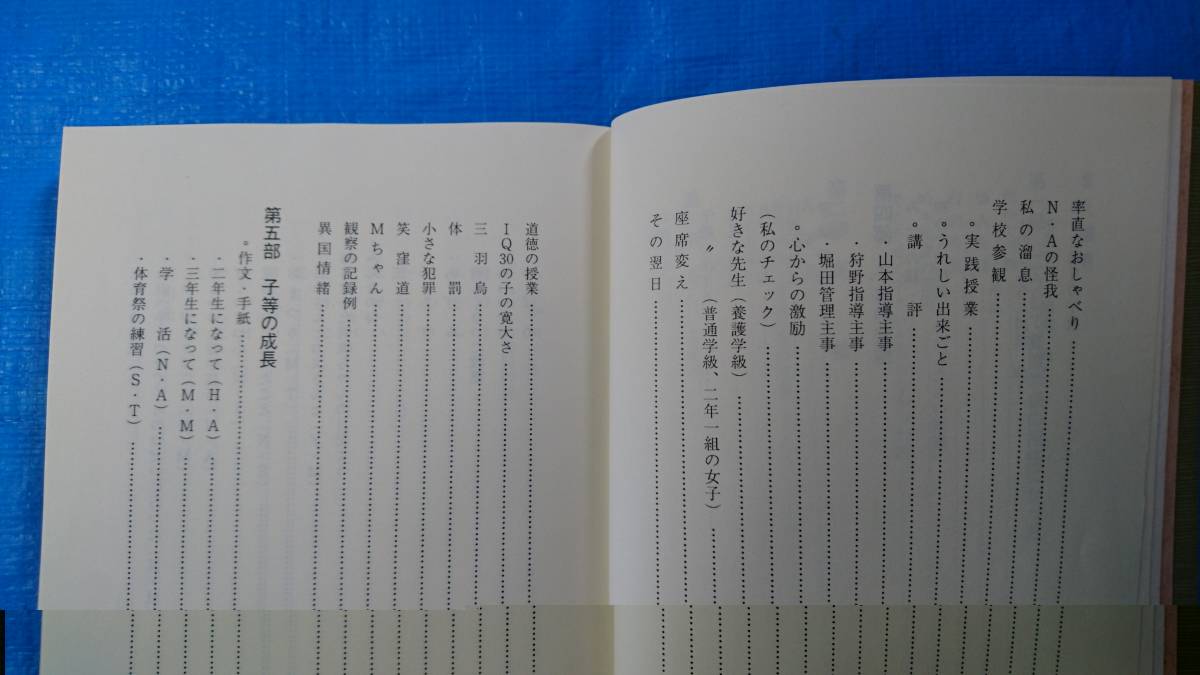 率直なおしゃべり
N・Aの怪我
私の溜息
学校参観
。実践授業
。うれしい出来ごと
。講評
・山本指導主事
・狩野指導主事
・堀田管理主事
。心からの激励
(私のチェック)
好きな先生(養護学級)
〃(普通学級、二年一組の女子)
座席変え
その翌日
道徳の授業
IQ30の子の寛大さ
三羽烏
体罰
小さな犯罪
笑窪道
Mちゃん
観察の記録例
異国情緒
第五部 子等の成長
。作文・手紙
・二年生になって(H・A)
・三年生になって(M・M)
・学活(N・A)
・体育祭の練習(S・T)